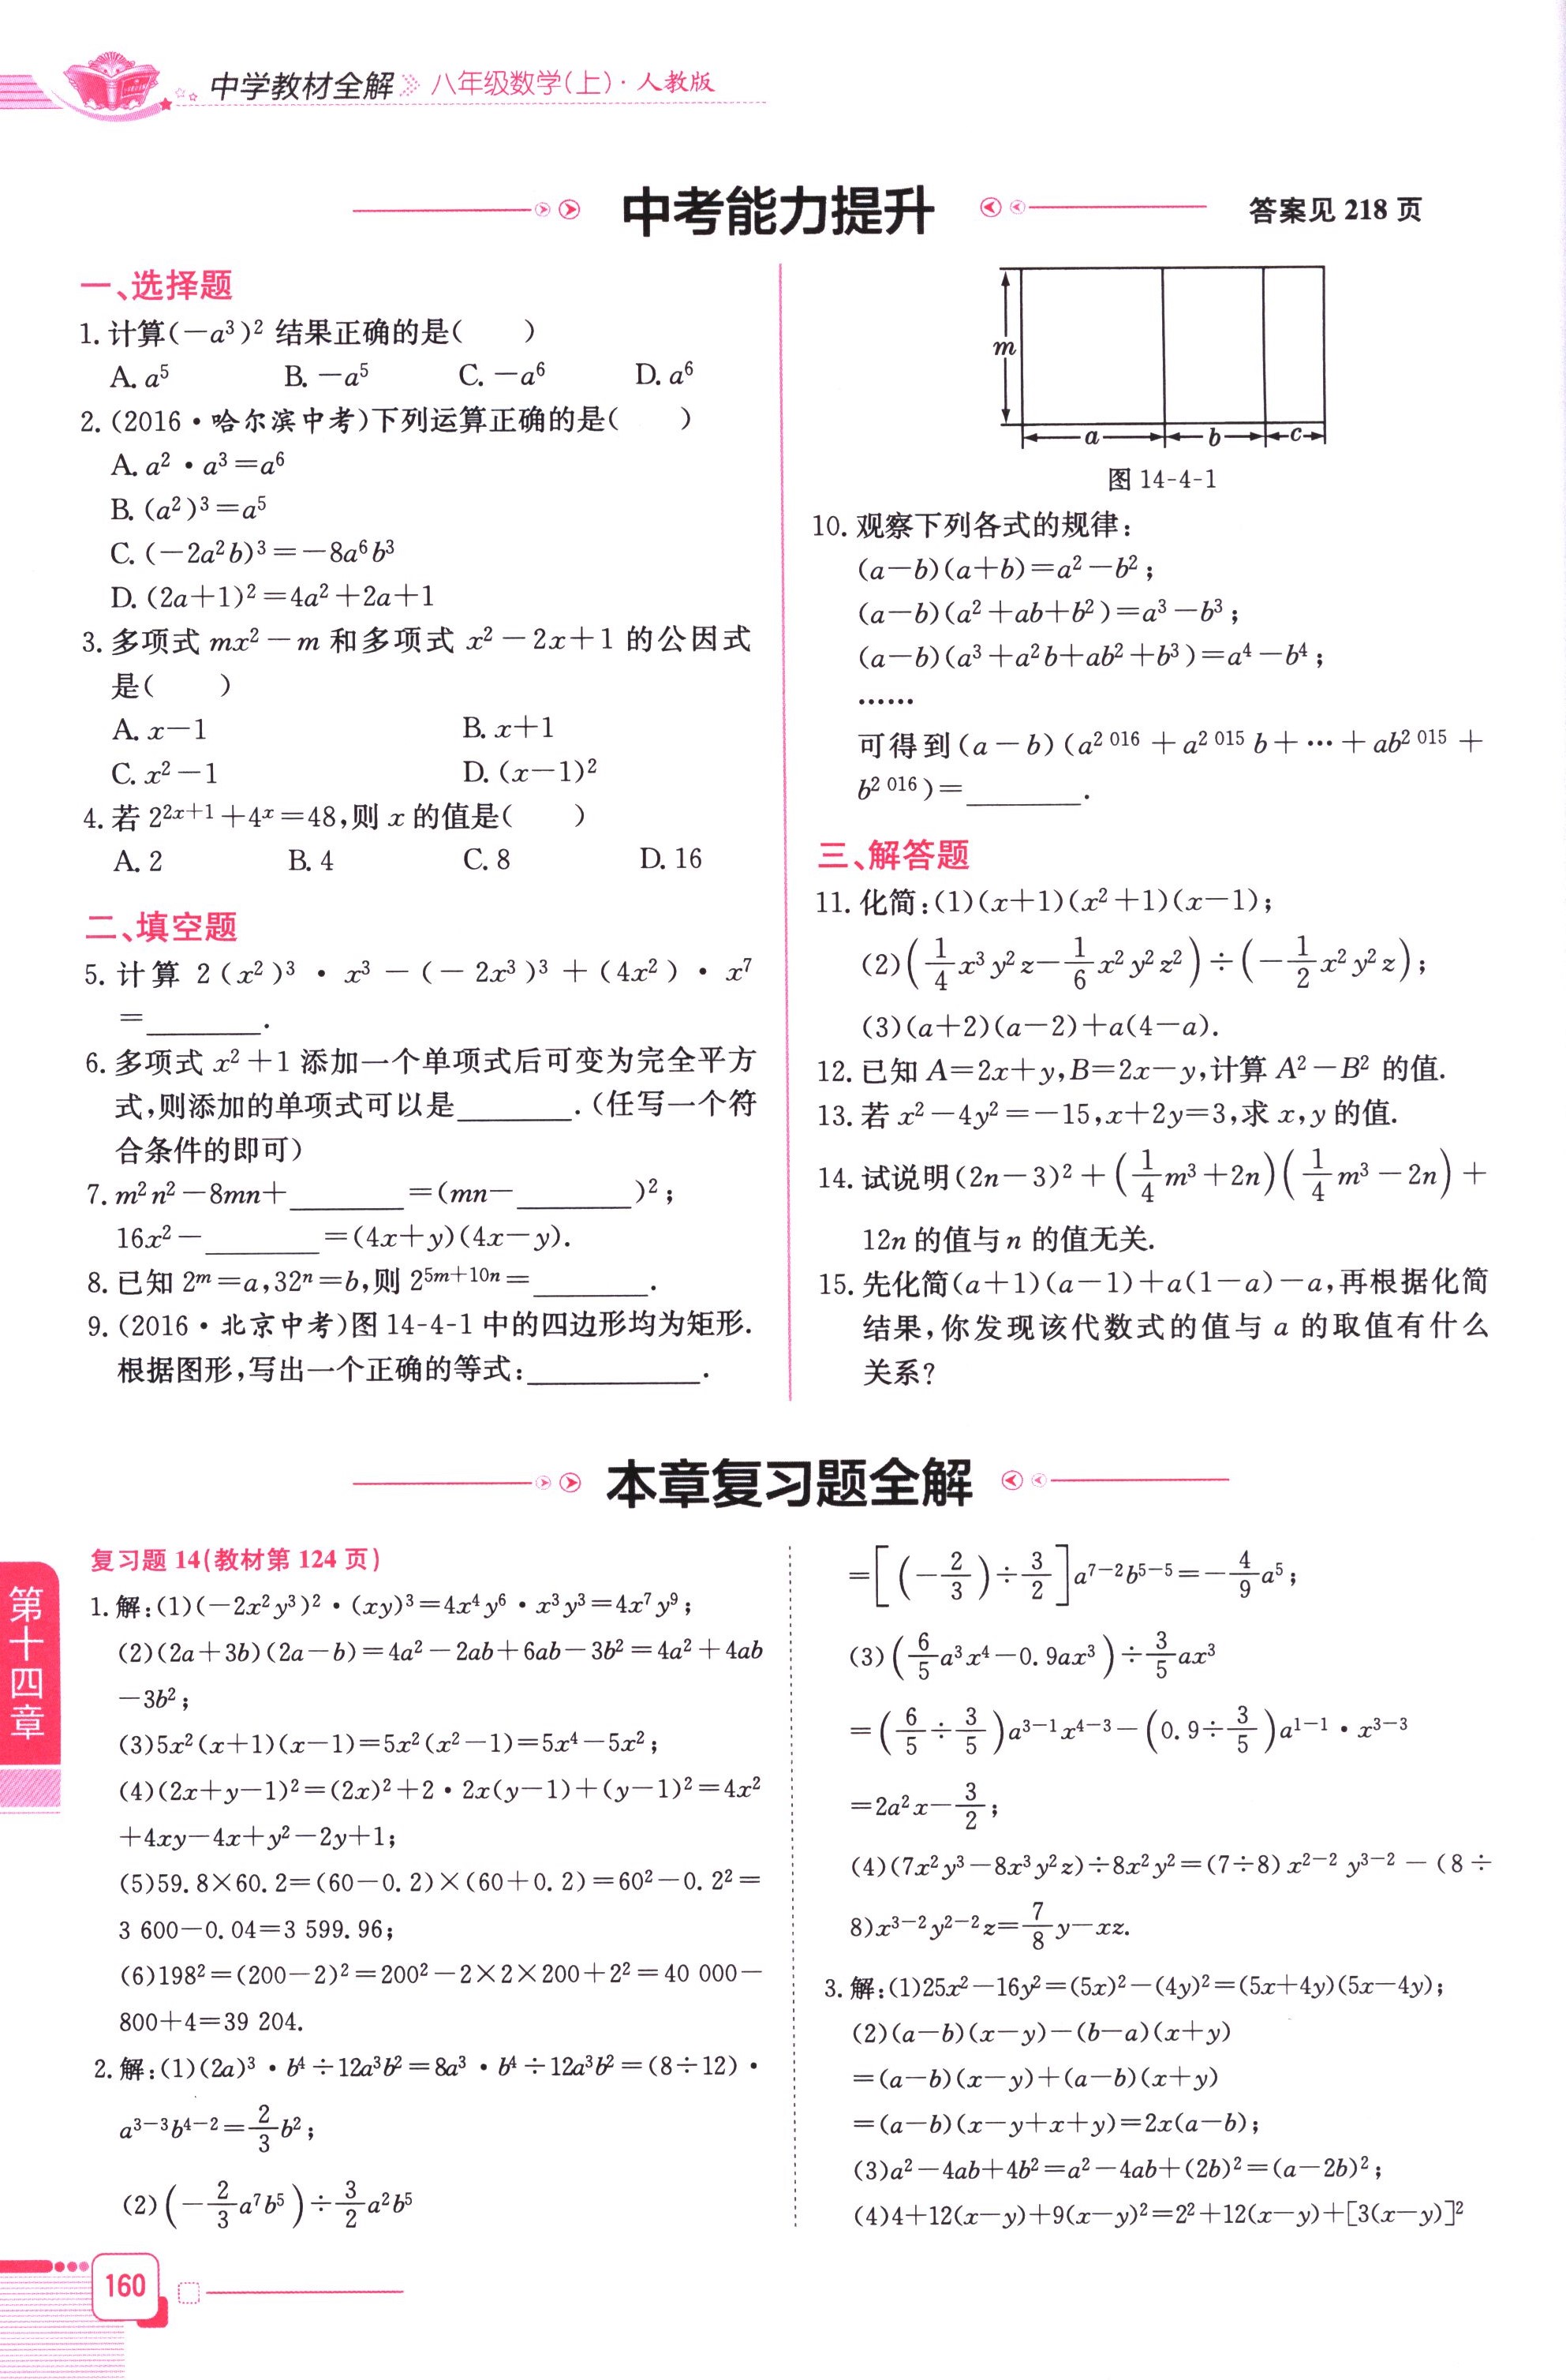 中学教材全解 八年级数学(上)·人教版
中考能力提升
答案见 218 页
一、选择题
1. 计算(−a³)² 结果正确的是(  )
A. a⁵  B. −a⁵  C. −a⁶  D. a⁶
2. (2016·哈尔滨中考)下列运算正确的是(  )
A. a²·a³=a⁶
B. (a²)³=a⁵
C. (−2a²b)³=−8a⁶b³
D. (2a+1)²=4a²+2a+1
3. 多项式 mx²−m 和多项式 x²−2x+1 的公因式
是(  )
A. x−1  B. x+1
C. x²−1  D. (x−1)²
4. 若 2^(2x+1)+4^x=48,则 x 的值是(  )
A. 2  B. 4  C. 8  D. 16
二、填空题
5. 计算 2(x²)³·x³−(−2x³)³+(4x²)·x⁷
=________.
6. 多项式 x²+1 添加一个单项式后可变为完全平方
式,则添加的单项式可以是________.(任写一个符
合条件的即可)
7. m²n²−8mn+________=(mn−________)²;
16x²−________=(4x+y)(4x−y).
8. 已知 2^m=a,32^n=b,则 2^(5m+10n)=________.
9. (2016·北京中考)图 14-4-1 中的四边形均为矩形.
根据图形,写出一个正确的等式:____________.
m
a b c
图 14-4-1
10. 观察下列各式的规律:
(a−b)(a+b)=a²−b²;
(a−b)(a²+ab+b²)=a³−b³;
(a−b)(a³+a²b+ab²+b³)=a⁴−b⁴;
……
可得到(a−b)(a^2 016+a^2 015 b+…+ab^2 015+
b^2 016)=________.
三、解答题
11. 化简:(1)(x+1)(x²+1)(x−1);
(2)(1/4 x³y²z−1/6 x²y²z²)÷(−1/2 x²y²z);
(3)(a+2)(a−2)+a(4−a).
12. 已知 A=2x+y,B=2x−y,计算 A²−B² 的值.
13. 若 x²−4y²=−15,x+2y=3,求 x,y 的值.
14. 试说明(2n−3)²+(1/4 m³+2n)(1/4 m³−2n)+
12n 的值与 n 的值无关.
15. 先化简(a+1)(a−1)+a(1−a)−a,再根据化简
结果,你发现该代数式的值与 a 的取值有什么
关系?
本章复习题全解
第十四章
复习题 14(教材第 124 页)
1. 解:(1)(−2x²y³)²·(xy)³=4x⁴y⁶·x³y³=4x⁷y⁹;
(2)(2a+3b)(2a−b)=4a²−2ab+6ab−3b²=4a²+4ab
−3b²;
(3)5x²(x+1)(x−1)=5x²(x²−1)=5x⁴−5x²;
(4)(2x+y−1)²=(2x)²+2·2x(y−1)+(y−1)²=4x²
+4xy−4x+y²−2y+1;
(5)59.8×60.2=(60−0.2)×(60+0.2)=60²−0.2²=
3 600−0.04=3 599.96;
(6)198²=(200−2)²=200²−2×2×200+2²=40 000−
800+4=39 204.
2. 解:(1)(2a)³·b⁴÷12a³b²=8a³·b⁴÷12a³b²=(8÷12)·
a^(3−3)b^(4−2)=2/3 b²;
(2)(−2/3 a⁷b⁵)÷3/2 a²b⁵
=[(−2/3)÷3/2]a^(7−2)b^(5−5)=−4/9 a⁵;
(3)(6/5 a³x⁴−0.9ax³)÷3/5 ax³
=(6/5÷3/5)a^(3−1)x^(4−3)−(0.9÷3/5)a^(1−1)·x^(3−3)
=2a²x−3/2;
(4)(7x²y³−8x³y²z)÷8x²y²=(7÷8)x^(2−2) y^(3−2)−(8÷
8)x^(3−2)y^(2−2)z=7/8 y−xz.
3. 解:(1)25x²−16y²=(5x)²−(4y)²=(5x+4y)(5x−4y);
(2)(a−b)(x−y)−(b−a)(x+y)
=(a−b)(x−y)+(a−b)(x+y)
=(a−b)(x−y+x+y)=2x(a−b);
(3)a²−4ab+4b²=a²−4ab+(2b)²=(a−2b)²;
(4)4+12(x−y)+9(x−y)²=2²+12(x−y)+[3(x−y)]²
160